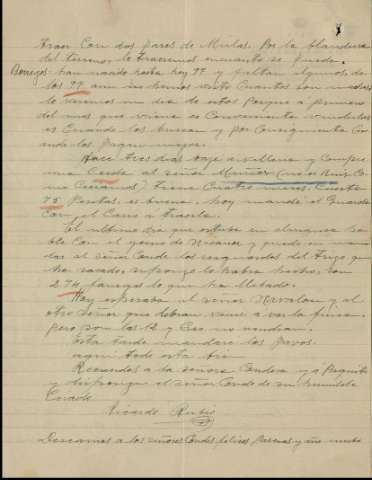 traer con dos pares de Mulas. Por la blandura
del terreno, lo traeremos encuanto se pueda.
Borregos: han nacido hasta hoy 97 y faltan algunos, de
los 97 aun no hemos visto cuantos son machos
lo veremos un dia de estos porque a primero
del mes que viene es conveniente venderlos
es cuando los buscan y por consiguiente
los pagan mejor.
Hace tres dias baje a villena y compre
una Cerda al señor Muñoz
tiene cuatro meses, cuesta
75 Pesetas es buena, hoy mandé al Guarda
con el Carro a traerla.
El ultimo dia que estuve en almansa ha
ble con el yerno de Nicanor y quedo en man
dar al señor Conde los resguardos del trigo que
ha sacado, supongo lo habra hecho, son
274 fanegas lo que ha llevado.
Hoy esperaba al señor Navalon y al
otro señor que debian venir a ver la finca
pero son las 12 y creo no vendran.
Esta tarde mandare los pavos.
aqui todo esta
Recuerdos a la señora Condesa y a Paquito
y disponga el señor Conde de su humilde
Criado
Ricardo Rubio
Deseamos a los señores Condes felices Pascuas y año nuevo